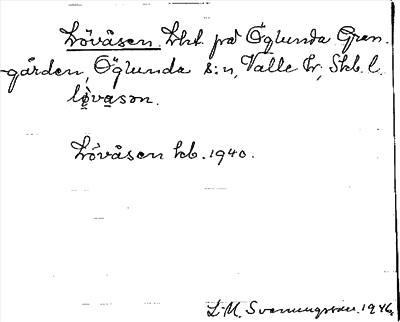 Lövåsen. Lht. på Öglunda Gran-
gården, Öglunda s:n, Valle hr, Skb. l.
lòvason.
Lövåsen kb. 1940.
L-M. Svenungsson. 1946.